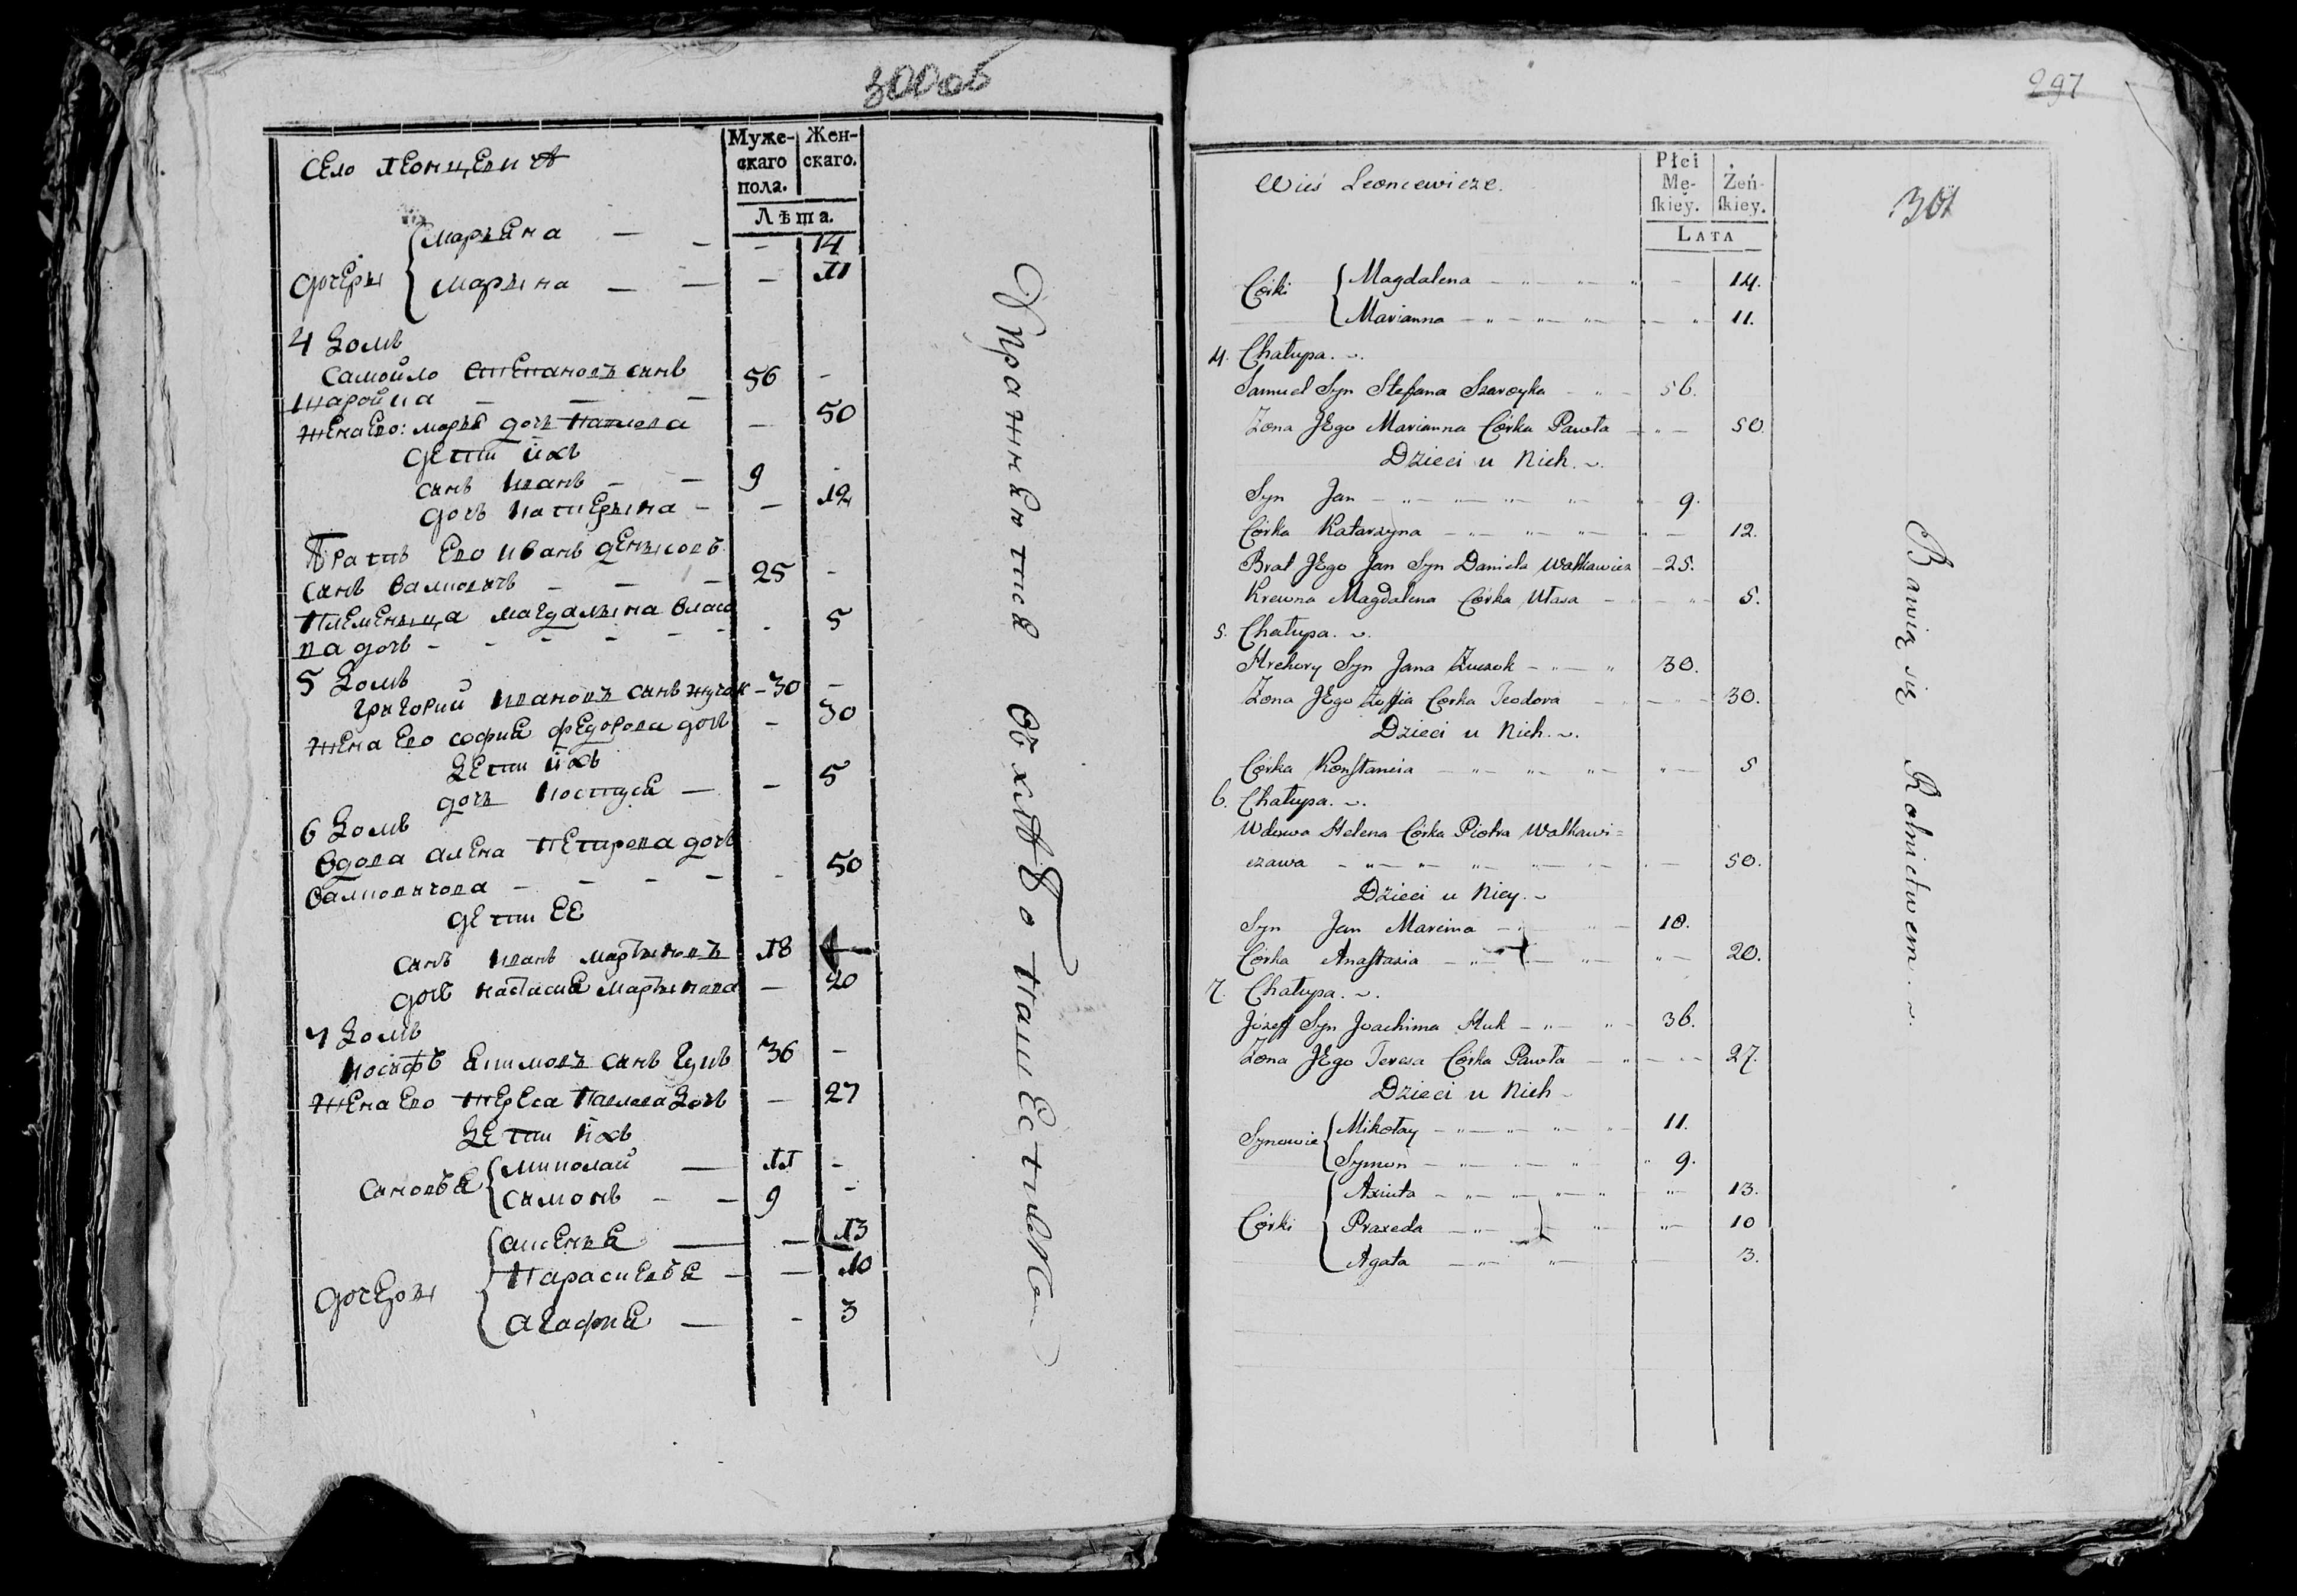 300об
Село Леонцевичѣ
Муже-
скаго
пола.
Жен-
скаго.
Лѣта.
Марьяна — — — 14
дочеры
Марына — — — 11
4 домъ
Самойло Степановъ сынъ 56 -
Шаройка — — —
жена его: марья дочь павлова — 50
дети ихъ
сынъ иванъ — — 9 -
дочь катерына — — 12
Братъ его иванъ денысовъ
сынъ валковичъ — — — 25 -
племеныца магдалына власо
ва дочь - - - - - - - 5
5 домъ
григорий ивановъ сынъ жучок - 30 -
жена его софия федорова дочь - 30
дети ихъ
дочь костуся — — 5
6 домъ
вдова алена петрова дочь
валковичова — — — — - 50
дети ее
сынъ иванъ мартыновъ 18
дочь настасия мартынова — 20
7 домъ
иосифъ якимовъ сынъ гукъ 36 —
жена его тереса павлова дочь — 27
дети ихъ
сыновъя
миколай — 11 -
сымонъ — — 9 -
аксенья — — 13
дочеры
парасковья — — 10
агафия — - 3
Упражняются въ хлѣбопашествѣ
297
301
Wieś Leoncewicze.
Płci
Mę-
ſkiey.
Żeń-
ſkiey.
LATA
Córki
Magdalena — „ — „ — „ — 14.
Marianna — „ — „ — „ — „ 11.
4. Chałupa. ~.
Samuel Syn Stefana Szaroyka — „ — 56.
Żona JEgo Marianna Córka Pawła — „ — 50.
Dzieci u Nich. ~.
Syn Jan — „ — „ — „ — „ — 9.
Córka Katarzyna — „ — „ — „ — 12.
Brat JEgo Jan Syn Daniela Walkawicz — 25.
Krewna Magdalena Córka Ułasa — — „ 5.
5. Chałupa. ~.
Hrehory Syn Jana Żuczok — „ — „ 30.
Żona JEgo Zoffia Corka Teodora — — 30.
Dzieci u Nich. ~.
Córka Konſtancia — „ — „ — „ — „ — 5
6. Chałupa. ~.
Wdowa Helena Córka Piotra Walkawi=
czawa — „ — „ — „ — „ — „ — 50.
Dzieci u Niey. ~
Syn Jan Marcina — „ — 18.
Córka Anaſtazia — „ — „ — „ — 20.
7. Chałupa. ~.
Józeff Syn Joachima Huk — „ — „ — 36.
Żona JEgo Teresa Córka Pawła — „ — 27.
Dzieci u Nich ~
Synowie
Mikołay — „ — „ — „ — 11.
Symon — „ — „ — „ 9.
Axiuta — „ — „ — „ — „ 13.
Córki
Praxeda — „ — „ — „ — 10
Agata — „ — „ — 3.
Bawią się Rolnictwem. ~.